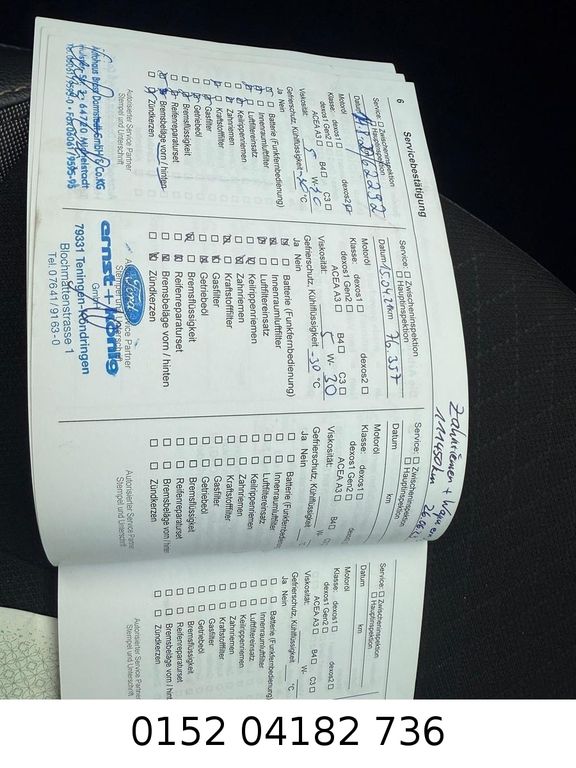 6
Servicebestätigung
Service: ☐ Zwischeninspektion
☐ Hauptinspektion
Datum
Motoröl
Klasse: dexos1 ☐ dexos2
dexos1 Gen2 ☐ B4 ☐
ACEA A3 ☐ C3 ☐
Viskosität: 5 W- 30
Gefrierschutz, Kühlflüssigkeit -30 °C
Ja Nein
Batterie (Funkfernbedienung)
Innenraumluftfilter
Luftfiltereinsatz
Keilrippenriemen
Zahnriemen
Kraftstofffilter
Gasfilter
Getriebeöl
Bremsflüssigkeit
Reifenreparaturset
Bremsbeläge vorn / hinten
Zündkerzen
Autorisierter Service Partner
Stempel und Unterschrift
GmbH & Co.KG
Service: ☐ Zwischeninspektion
☐ Hauptinspektion
Datum km 76.357
Motoröl
Klasse: dexos1 ☐ dexos2 ☐
dexos1 Gen2 ☐ B4 ☐
ACEA A3 ☐ C3 ☐
Viskosität: 5 W- 30
Gefrierschutz, Kühlflüssigkeit -30 °C
Ja Nein
Batterie (Funkfernbedienung)
Innenraumluftfilter
Luftfiltereinsatz
Keilrippenriemen
Zahnriemen
Kraftstofffilter
Gasfilter
Getriebeöl
Bremsflüssigkeit
Reifenreparaturset
Bremsbeläge vorn / hinten
Zündkerzen
Service Partner
Ford
ernst + könig
GmbH
79331 Teningen-Köndringen
Blochmattenstrasse 1
Tel. 07641/9163-0
Zahnriemen +
111450 km
Service: ☐ Zwischeninspektion
☐ Hauptinspektion
Datum km
Motoröl
Klasse: dexos1 ☐
dexos1 Gen2 ☐ B4 ☐
ACEA A3 ☐
Viskosität: W-
Gefrierschutz, Kühlflüssigkeit
Ja Nein
☐ ☐ Batterie (Funkfernbedien
☐ ☐ Innenraumluftfilter
☐ ☐ Luftfiltereinsatz
☐ ☐ Keilrippenriemen
☐ ☐ Zahnriemen
☐ ☐ Kraftstofffilter
☐ ☐ Gasfilter
☐ ☐ Getriebeöl
☐ ☐ Bremsflüssigkeit
☐ ☐ Reifenreparaturset
☐ ☐ Bremsbeläge vorn
☐ ☐ Zündkerzen
Autorisierter Service Partner
Stempel und Unterschrift
Service: ☐ Zwischeninspektion
☐ Hauptinspektion
Datum km
Motoröl
Klasse: dexos1 ☐ dexos2 ☐
dexos1 Gen2 ☐ B4 ☐
ACEA A3 ☐ C3 ☐
Viskosität: W-
Gefrierschutz, Kühlflüssigkeit °C
Ja Nein
☐ ☐ Batterie (Funkfernbedienung)
☐ ☐ Innenraumluftfilter
☐ ☐ Luftfiltereinsatz
☐ ☐ Keilrippenriemen
☐ ☐ Zahnriemen
☐ ☐ Kraftstofffilter
☐ ☐ Gasfilter
☐ ☐ Getriebeöl
☐ ☐ Bremsflüssigkeit
☐ ☐ Reifenreparaturset
☐ ☐ Bremsbeläge vorn / hint
☐ ☐ Zündkerzen
Autorisierter Service Partner
Stempel und Unterschrift
0152 04182 736